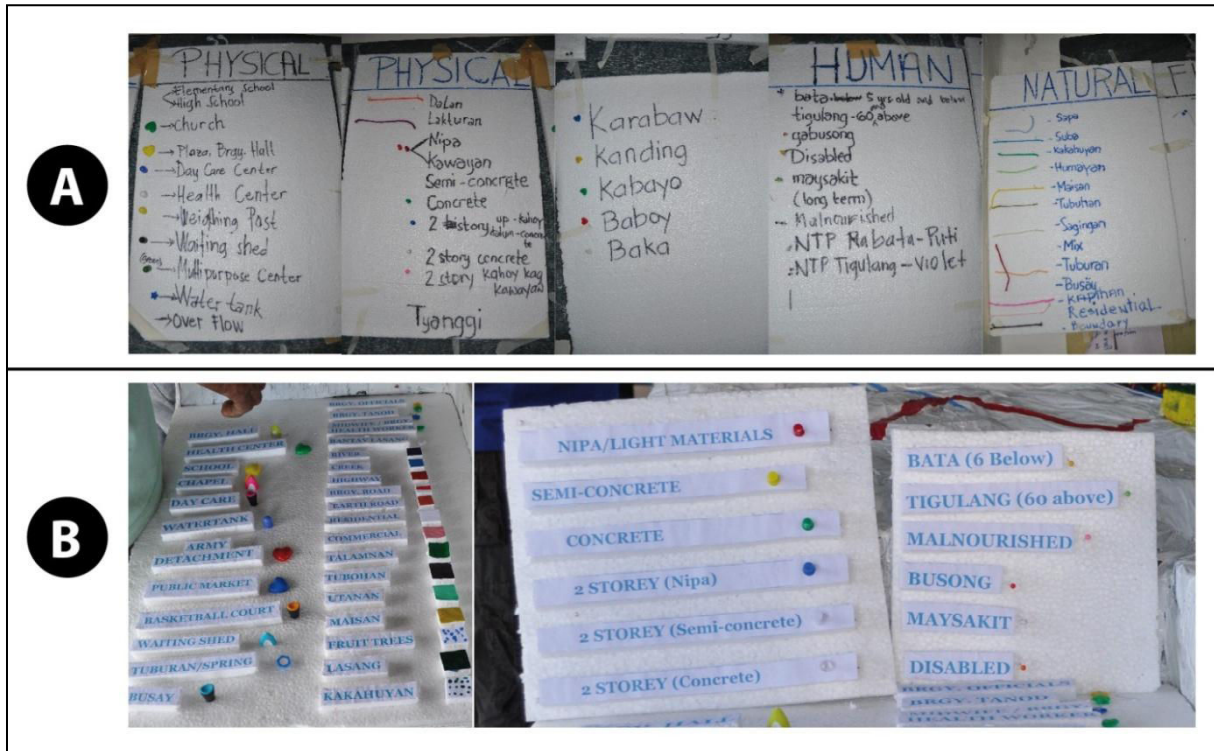 A
PHYSICAL
Elementary School
High School
church
Plaza, Brgy. Hall
Day Care Center
Health Center
Weighing Post
Waiting shed
(Green)
Multipurpose Center
Water tank
Over Flow
PHYSICAL
Dalan
Lakturan
Nipa
Kawayan
Semi-concrete
Concrete
2 story up-kahoy
2 story concrete
2 story kahoy kag
kawayan
Tyanggi
Karabaw
Kanding
Kabayo
Baboy
Baka
HUMAN
bata below 5 yrs old and below
tigulang-60 and above
gabusong
Disabled
maysakit
(long term)
Malnourished
NTP Tigulang-Violet
NATURAL
Sapa
Suba
Kakahuyan
Humayan
Maisan
Tubuhan
Sagingan
Mix
Tuburan
Busay
KAPIHAN
Residential
Boundary
B
BRGY. HALL
HEALTH CENTER
SCHOOL
CHAPEL
DAY CARE
WATERTANK
ARMY
DETACHMENT
PUBLIC MARKET
BASKETBALL COURT
WAITING SHED
TUBURAN/SPRING
BUSAY
BRGY. OFFICIALS
BRGY. TANOD
MIDWIFE / BRGY.
HEALTH WORKER
BANTAY LASANG
RIVER
CREEK
HIGHWAY
BRGY. ROAD
EARTH ROAD
RESIDENTIAL
COMMERCIAL
TALAMNAN
TUBOHAN
UTANAN
MAISAN
FRUIT TREES
LASANG
KAKAHUYAN
NIPA/LIGHT MATERIALS
SEMI-CONCRETE
CONCRETE
2 STOREY (Nipa)
2 STOREY (Semi-concrete)
2 STOREY (Concrete)
BATA (6 Below)
TIGULANG (60 above)
MALNOURISHED
BUSONG
MAYSAKIT
DISABLED
BRGY. OFFICIALS
BRGY. TANOD
MIDWIFE / BRGY.
HEALTH WORKER